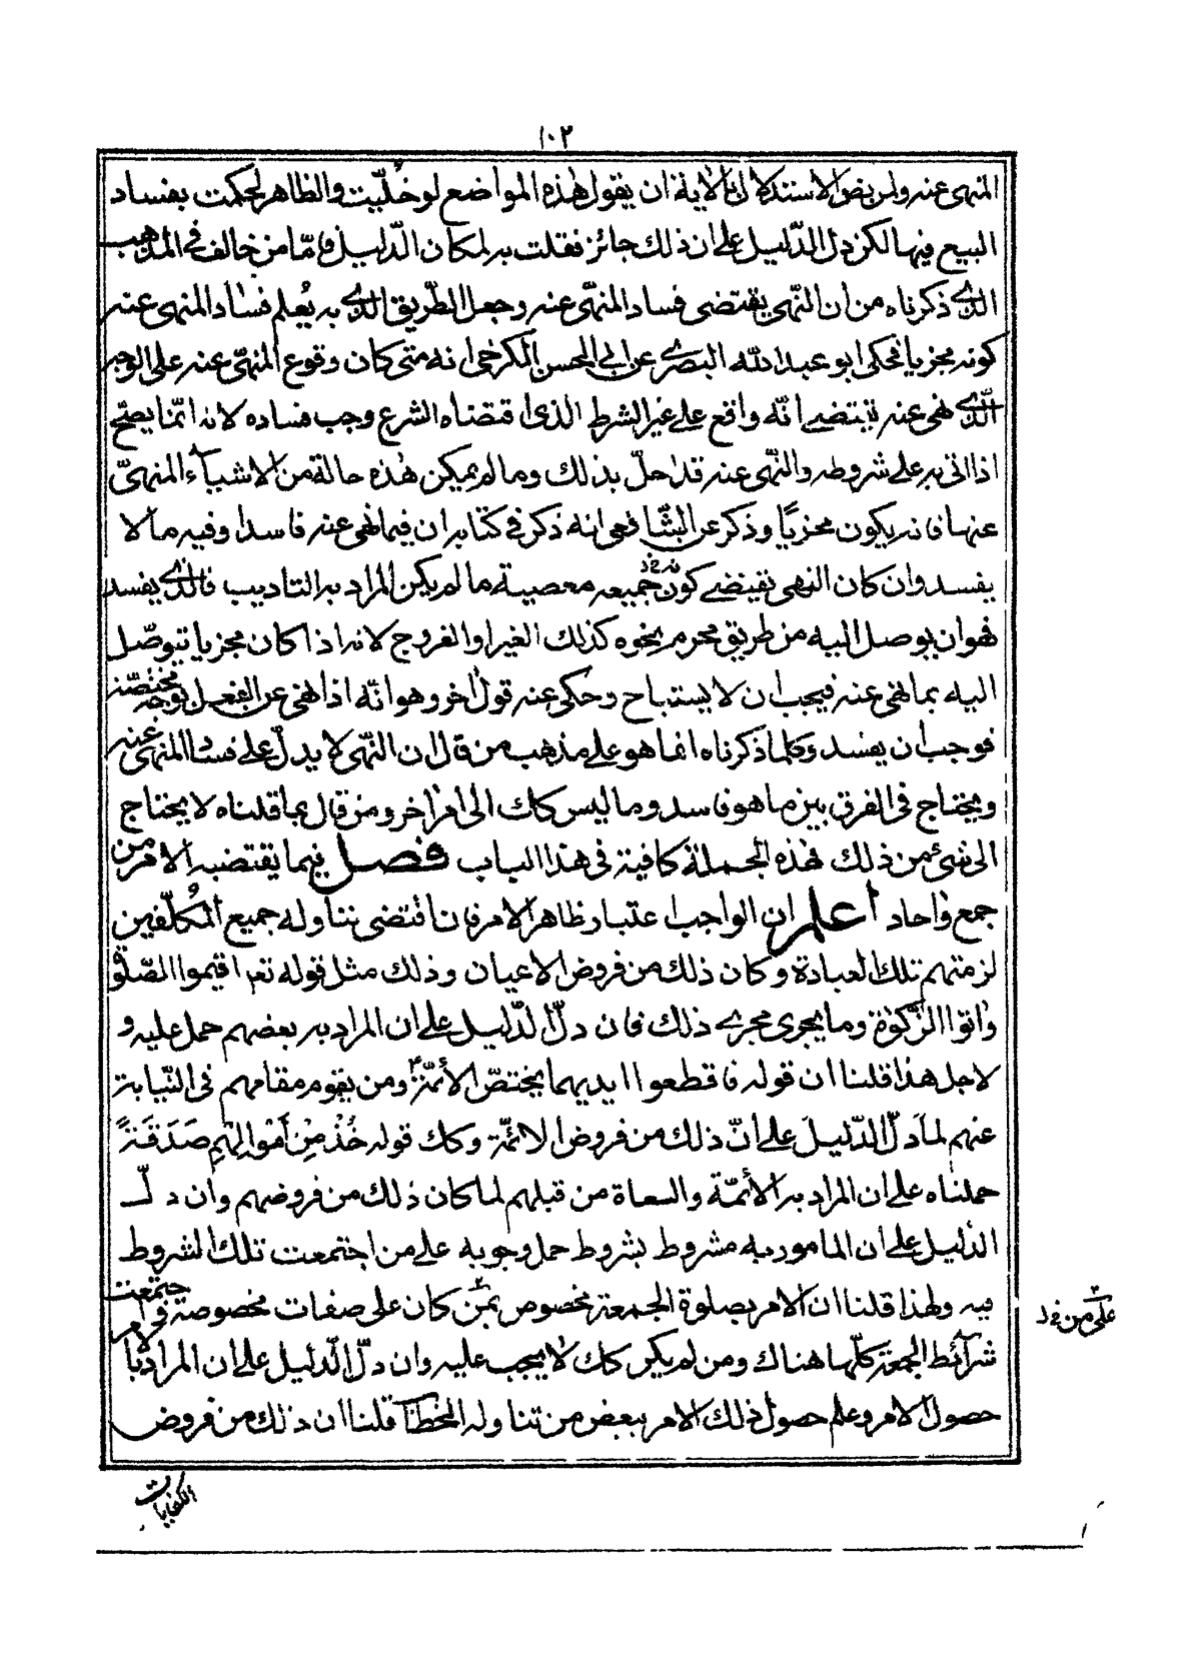 ١٠٢
المنهى عنه ولمن نصر الاستدلال بالاية ان يقول هذه المواضع لو خُلّيت والظاهر لحكمت بفساد
البيع فيها لكن دل الدّليل على ان ذلك جائز فقلت به لمكان الدّليل فامّا من خالف فى المذهب
الذى ذكرناه من ان النّهى يقتضى فساد المنهىّ عنه وجعل الطّريق الذى به يُعلم فساد المنهى عنه
كونه مجزيا فحكى ابو عبد الله البصرى عن ابى الحسن الكرخى انه متى كان وقوع المنهىّ عنه على الوجه
الّذى نهى عنه يقتضى انّه واقع على غير الشرط الذى اقتضاه الشرع وجب فساده لانه انّما يصحّ
اذا اتى به على شروطه والنّهى عنه قد اخلّ بذلك وما لم يكن هذه حالة من الاشياء المنهىّ
عنها فانه يكون مجزيًا وذكر عن الشّافعى انه ذكر فى كتابه ان فيما نهى عنه فاسدا وفيه ما لا
يفسد وان كان النهى يقتضى كون جميعه معصية ما لم يكن المراد به التاديب فالذى يفسد
فهو ان يوصل اليه من طريق محرم نحوه كذلك الغير او الفروج لانه اذا كان مجزيا يتوصّل
اليه بما نهى عنه فيجب ان لا يستباح وحكى عنه قول اخر وهو انّه اذا نهى عن الفعل لوجه يختصّه
فوجب ان يفسد وكلما ذكرناه انما هو على مذهب من قال ان النّهى لا يدلّ على فساد المنهى عنه
ويحتاج فى الفرق بين ما هو فاسد وما ليس كك الى امر اخر ومن قال بما قلناه لا يحتاج
الى شىء من ذلك فهذه الجملة كافية فى هذا الباب فصل فيما يقتضيه الامر من
جمع واحاد أعلم ان الواجب اعتبار ظاهر الامر فان اقتضى تناوله جميع المُكلّفين
لزمتهم تلك العبادة وكان ذلك من فروض الاعيان وذلك مثل قوله تع اقيموا الصّلوة
واتوا الزّكوة وما يجرى مجرى ذلك فان دلّ الدّليل على ان المراد به بعضهم حمل عليه و
لاجل هذا قلنا ان قوله فاقطعوا ايديهما يختصّ الأئمّة ع ومن يقوم مقامهم فى النّيابة
عنهم لما دلّ الدّليل على انّ ذلك من فروض الائمّة وكك قوله خُذْ مِنْ اَمْوالِهِمْ صَدَقَةً
حملناه على ان المراد به الأئمّة والسعاة من قبلهم لما كان ذلك من فروضهم وان دلّ
الدّليل على ان المامور به مشروط بشروط حمل وجوبه على من اجتمعت تلك الشروط
فيه ولهذا قلنا ان الامر بصلوة الجمعة مخصوص بمن كان على صفات مخصوصة فى اجتمعت
على من خ د
شرائط الجمعة كلّها هناك ومن لم يكن كك لا يجب عليه وان دلّ الدّليل على ان المراد بالامر
حصول الامر وعلم حصول ذلك الامر ببعض من تناوله الخطاب قلنا ان ذلك من فروض
الكفايات